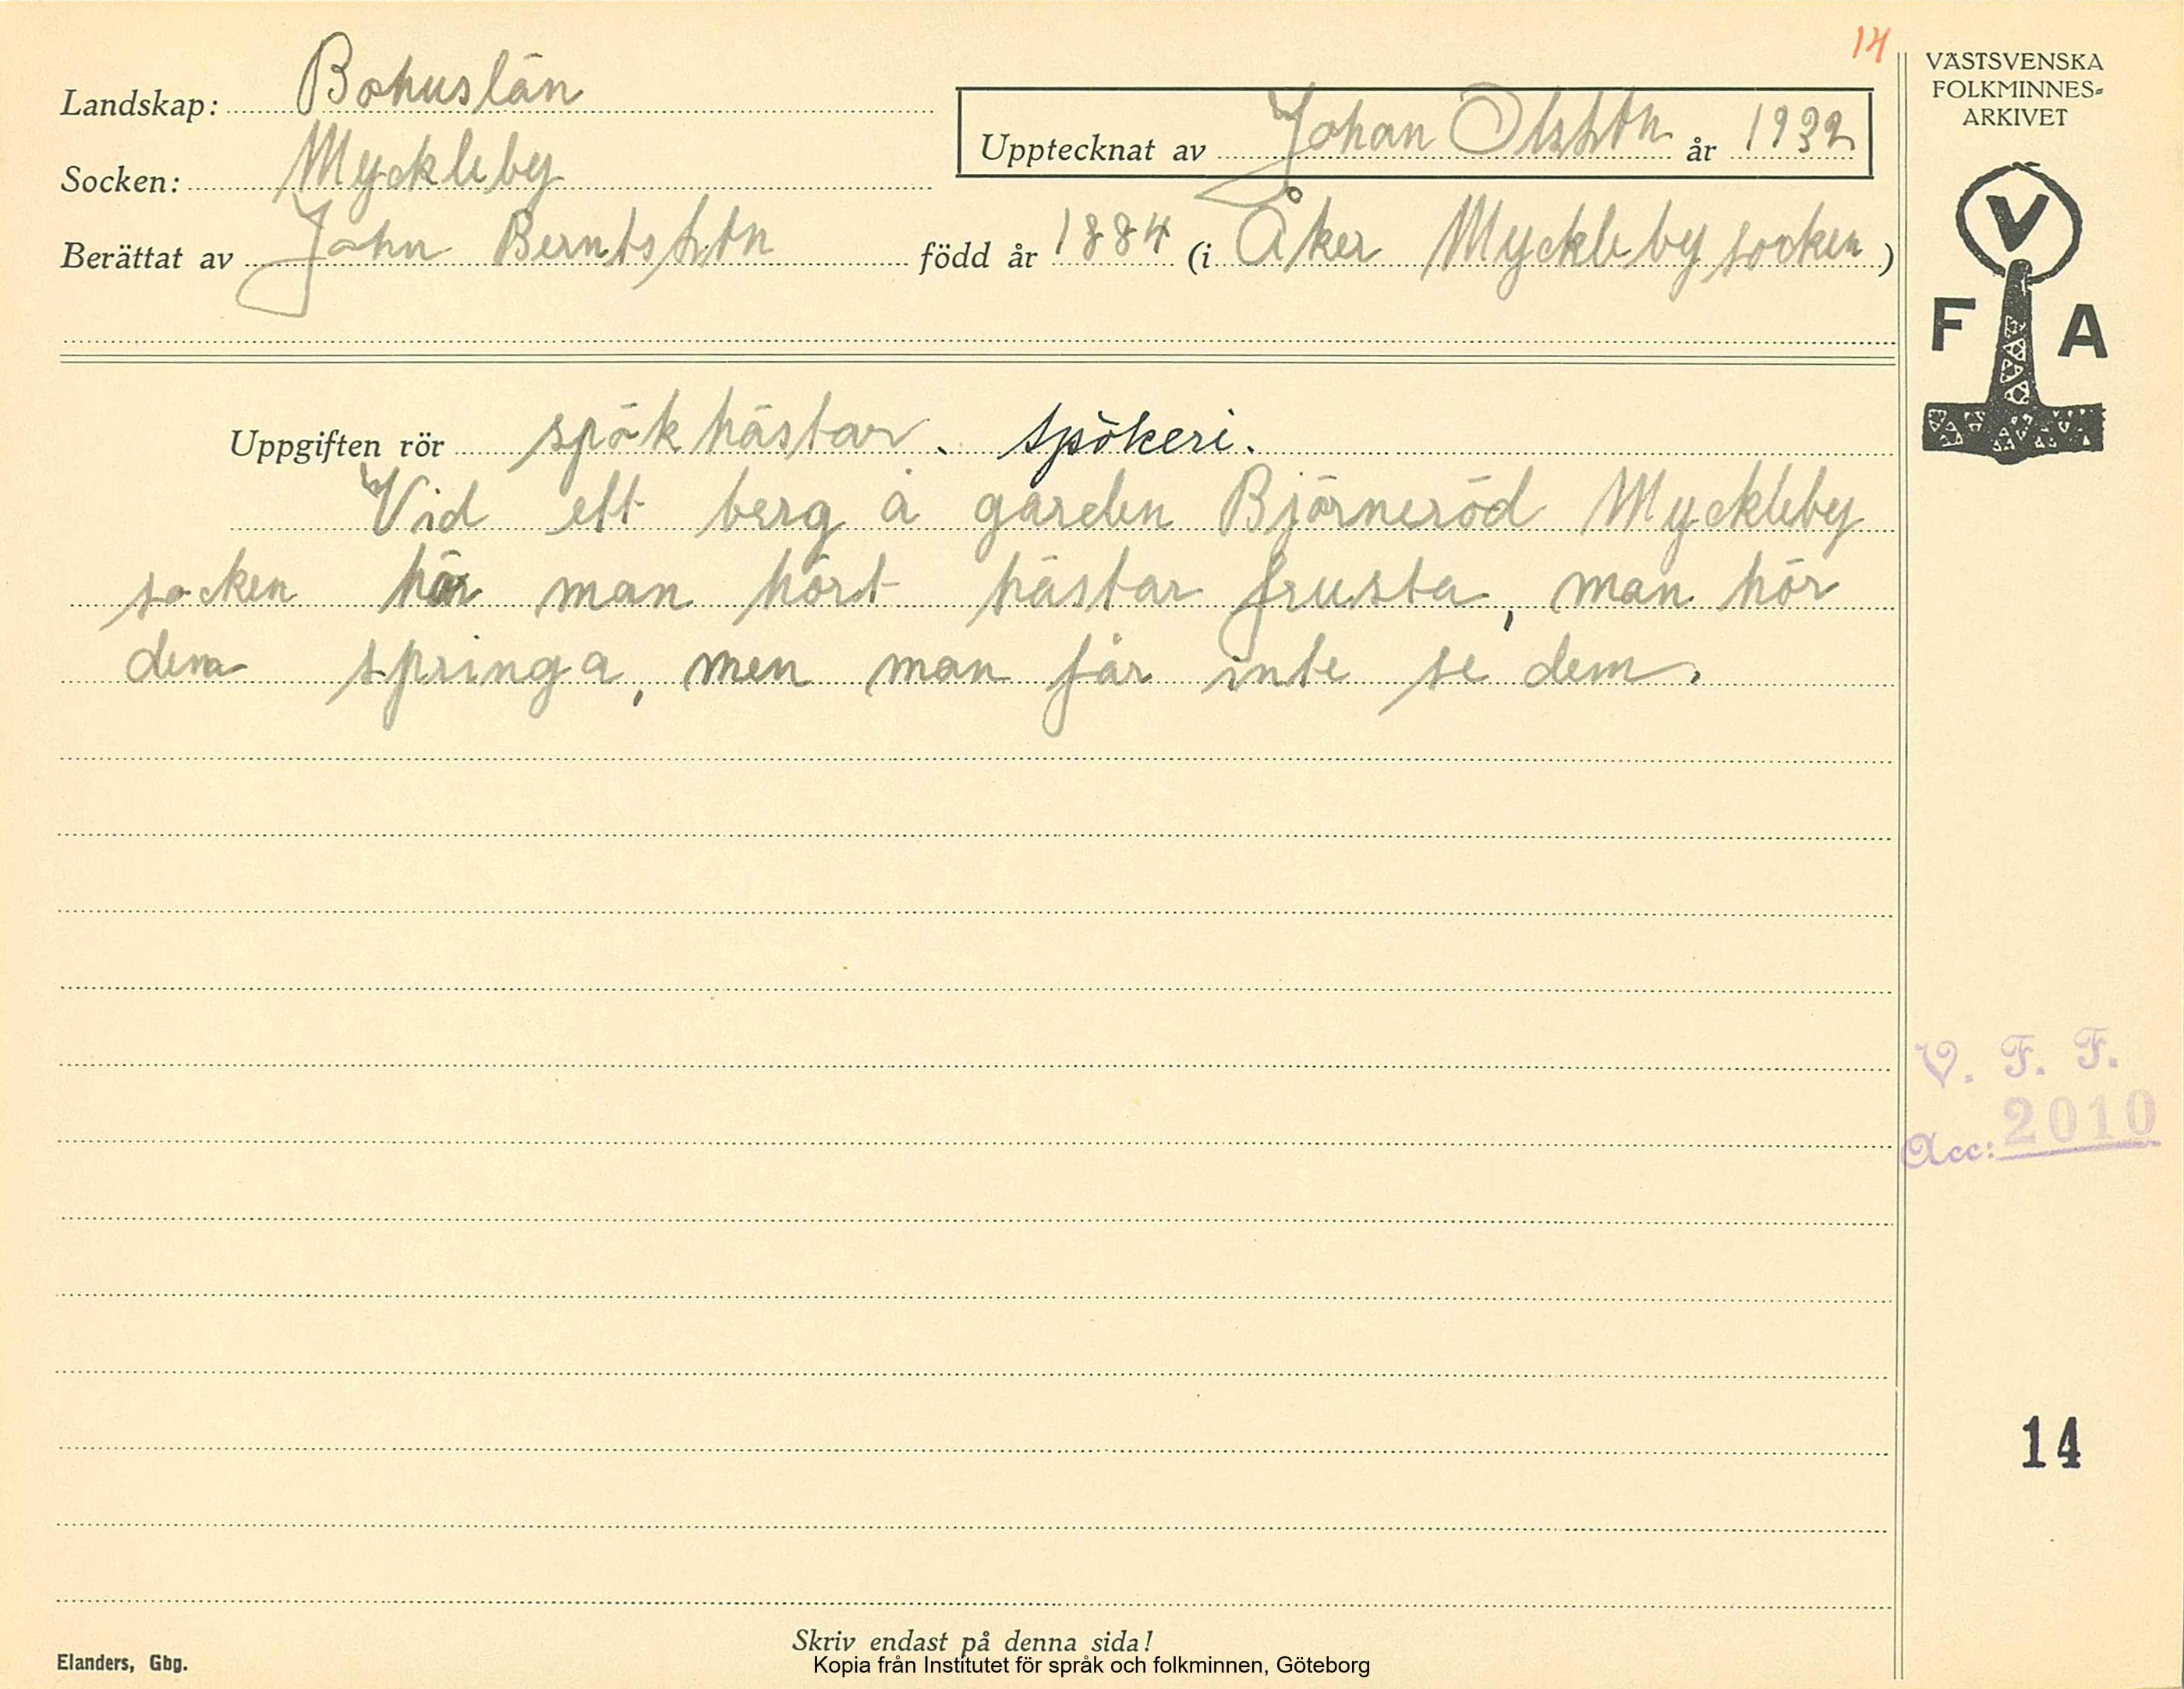 14
VÄSTSVENSKA
FOLKMINNES=
ARKIVET
Landskap: Bohuslän
Upptecknat av Johan Olsson år 1932
Socken: Myckleby
Berättat av John Berntsson född år 1884 (i Åker Myckleby socken)
V
F A
Uppgiften rör spökhästar. Spökeri.
Vid ett berg å gården Björneröd Myckleby
socken har man hört hästar frusta, man hör
dem springa, men man får inte se dem.
V. F. F.
Acc: 2010
14
Skriv endast på denna sida!
Elanders, Gbg.
Kopia från Institutet för språk och folkminnen, Göteborg